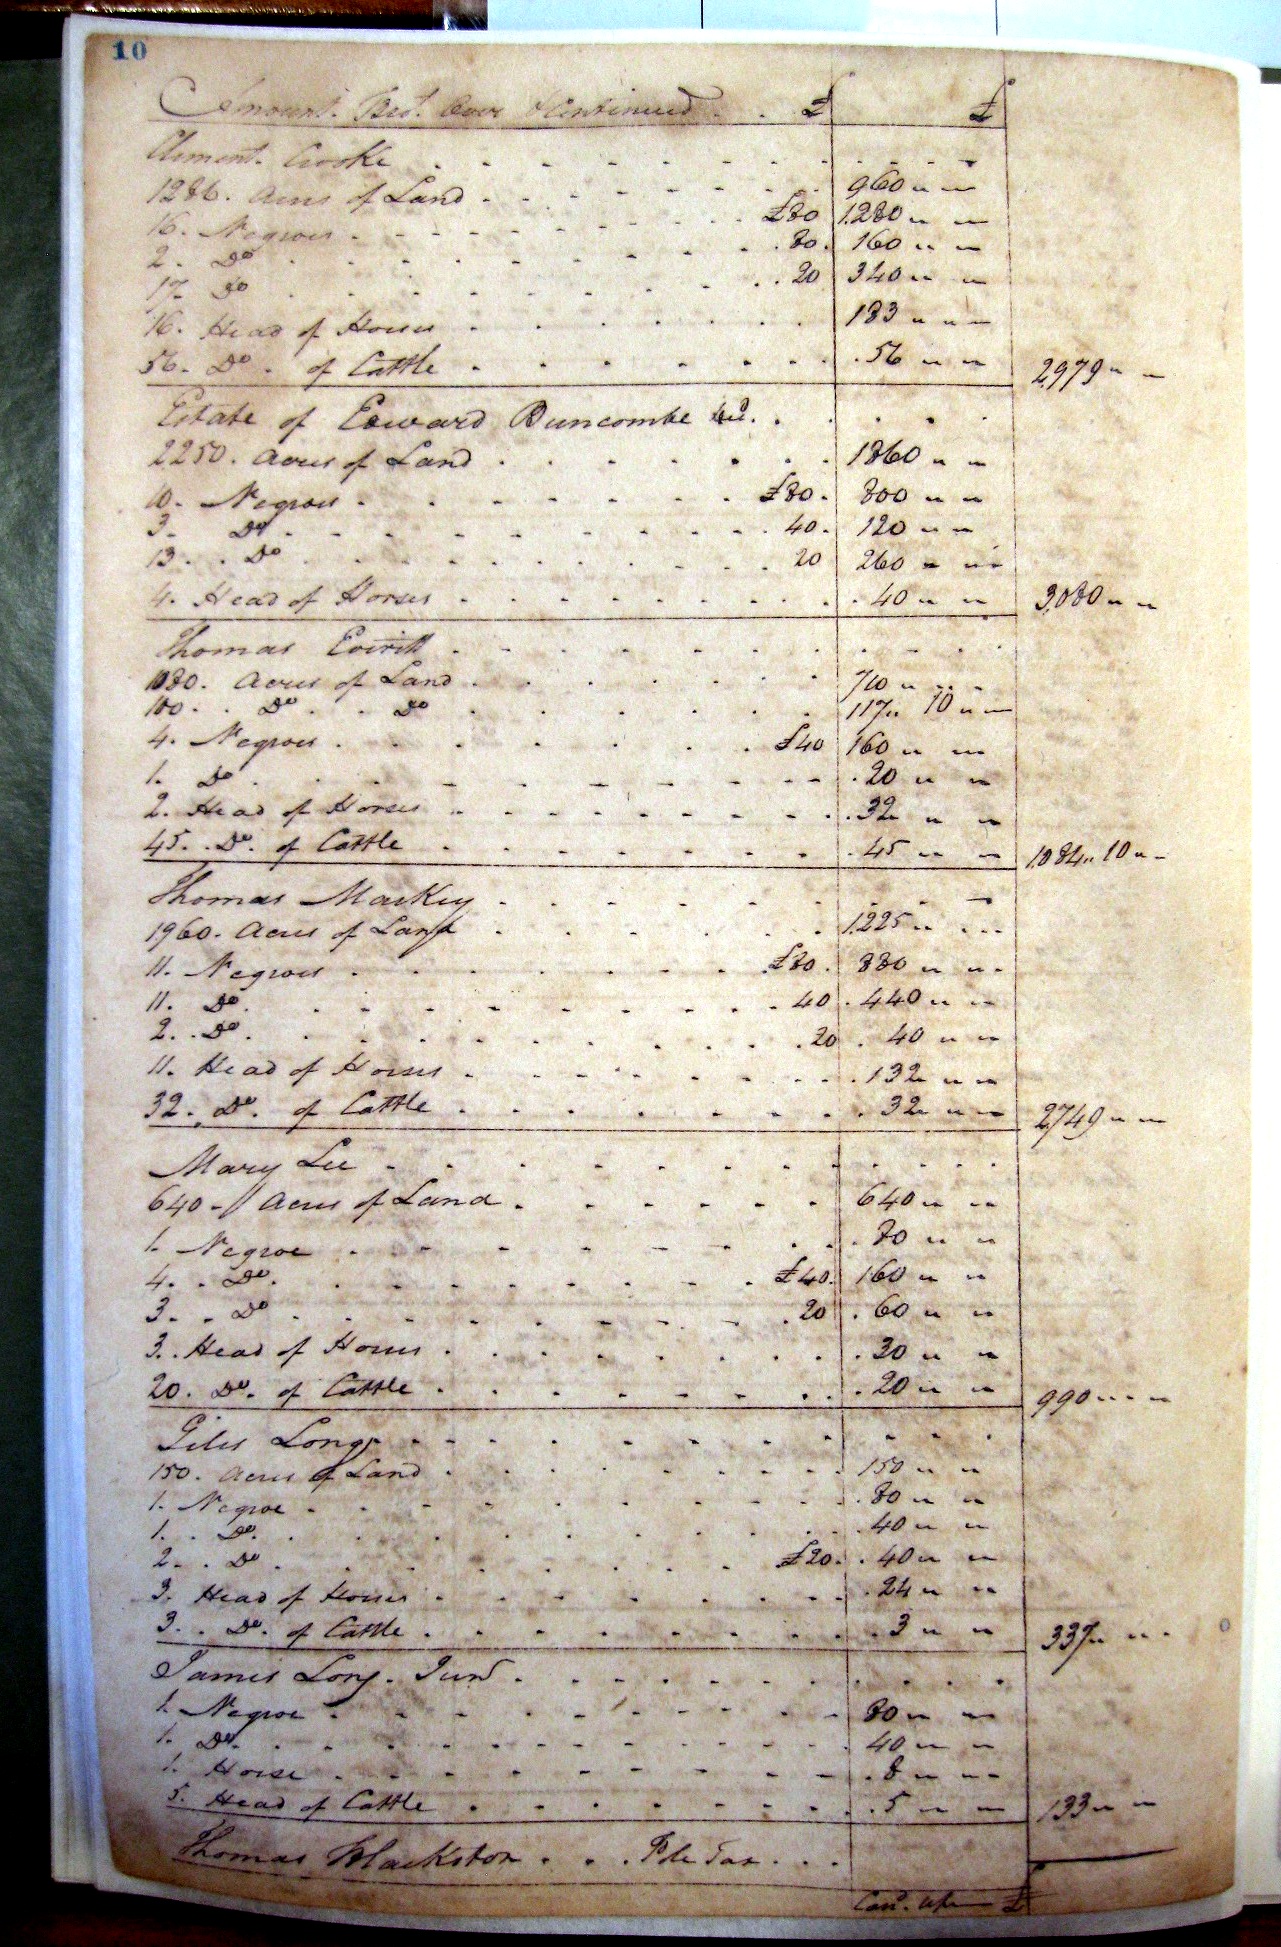 10
Amount. Bro.t Over & Continued . . £ £
Clement. Crooke
1286. Acres of Land 960 " "
16. Negroes £80 1280 " "
2. Do 80. 160 " "
17. Do 20 340 " "
16. Head of Horses 183 " "
56. Do. of Cattle 56 " " 2,979 " "
Estate of Edward Buncombe
2250. Acres of Land 1860 " "
10. Negroes £80. 800 " "
3. Do 40. 120 " "
13. Do 20 260 " "
4. Head of Horses 40 " " 3,080 " "
Thomas Everitt
1080. Acres of Land 710 " "
100. Do Do 117 " 10 "
4. Negroes £40 160 " "
1. Do 20 " "
2. Head of Horses 32 " "
45. Do. of Cattle 45 " " 1,084 " 10 "
Thomas Mackey
1960. Acres of Land 1225 " "
11. Negroes £80. 880 " "
11. Do 40 440 " "
2. Do 20 40 " "
11. Head of Horses 132 " "
32. Do. of Cattle 32 " " 2,749 " "
Mary Lee
640 Acres of Land 640 " "
1. Negroe 80 " "
4. Do £40. 160 " "
3. Do 20 60 " "
3. Head of Horses 30 " "
20. Do. of Cattle 20 " " 990 " "
Giles Long
150. Acres of Land 150 " "
1. Negroe 80 " "
1. Do 40 " "
2. Do £20. 40 " "
3. Head of Horses 24 " "
3. Do. of Cattle 3 " " 337 " "
James Long. Junr
1. Negroe 80 " "
1. Do. 40 " "
1. Horse 8 " "
5. Head of Cattle 5 " " 133 " "
Thomas Blackston . . . Pole Tax . . .
Card. up £